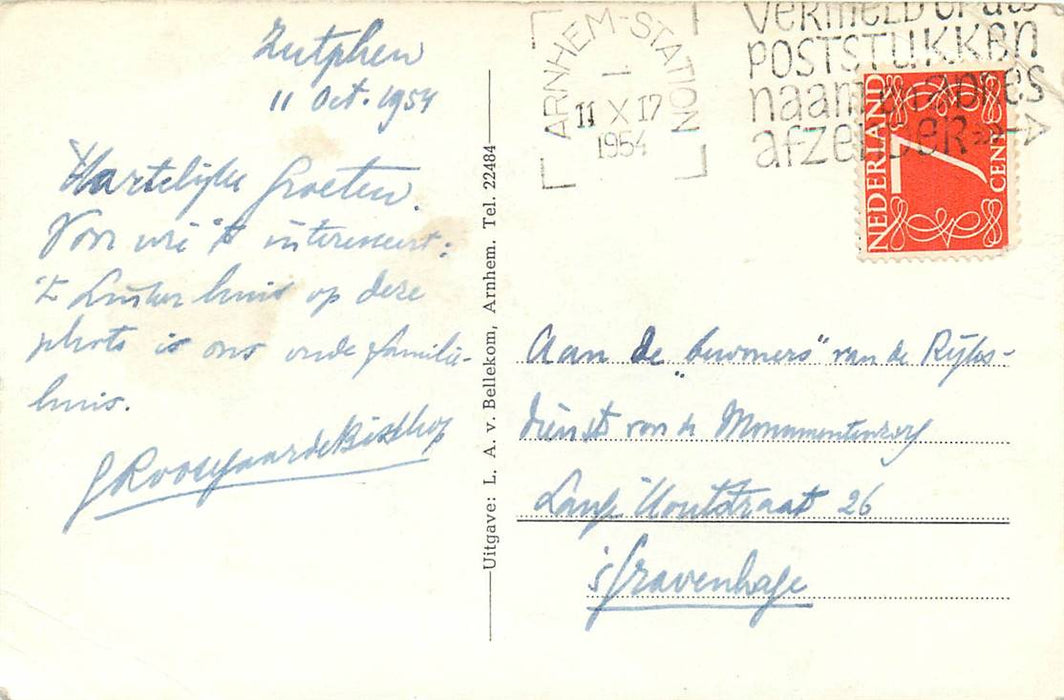 Zutphen
11 Oct. 1954
Hartelijke Groeten.
Voor wie 't interesseert:
't Linker huis op deze
photo is ons oude familie-
huis.
G Roosegaarde Bisschop
Uitgave: L. A. v. Bellekom, Arnhem. Tel. 22484
ARNHEM-STATION
1
11 X 17
1954
VERMELD OP UW
POSTSTUKKEN
naam en adres
afzender
NEDERLAND
7
CENT
Aan de "bewoners" van de Rijks-
dienst van de Monumentenzorg
Lange Houtstraat 26
's Gravenhage